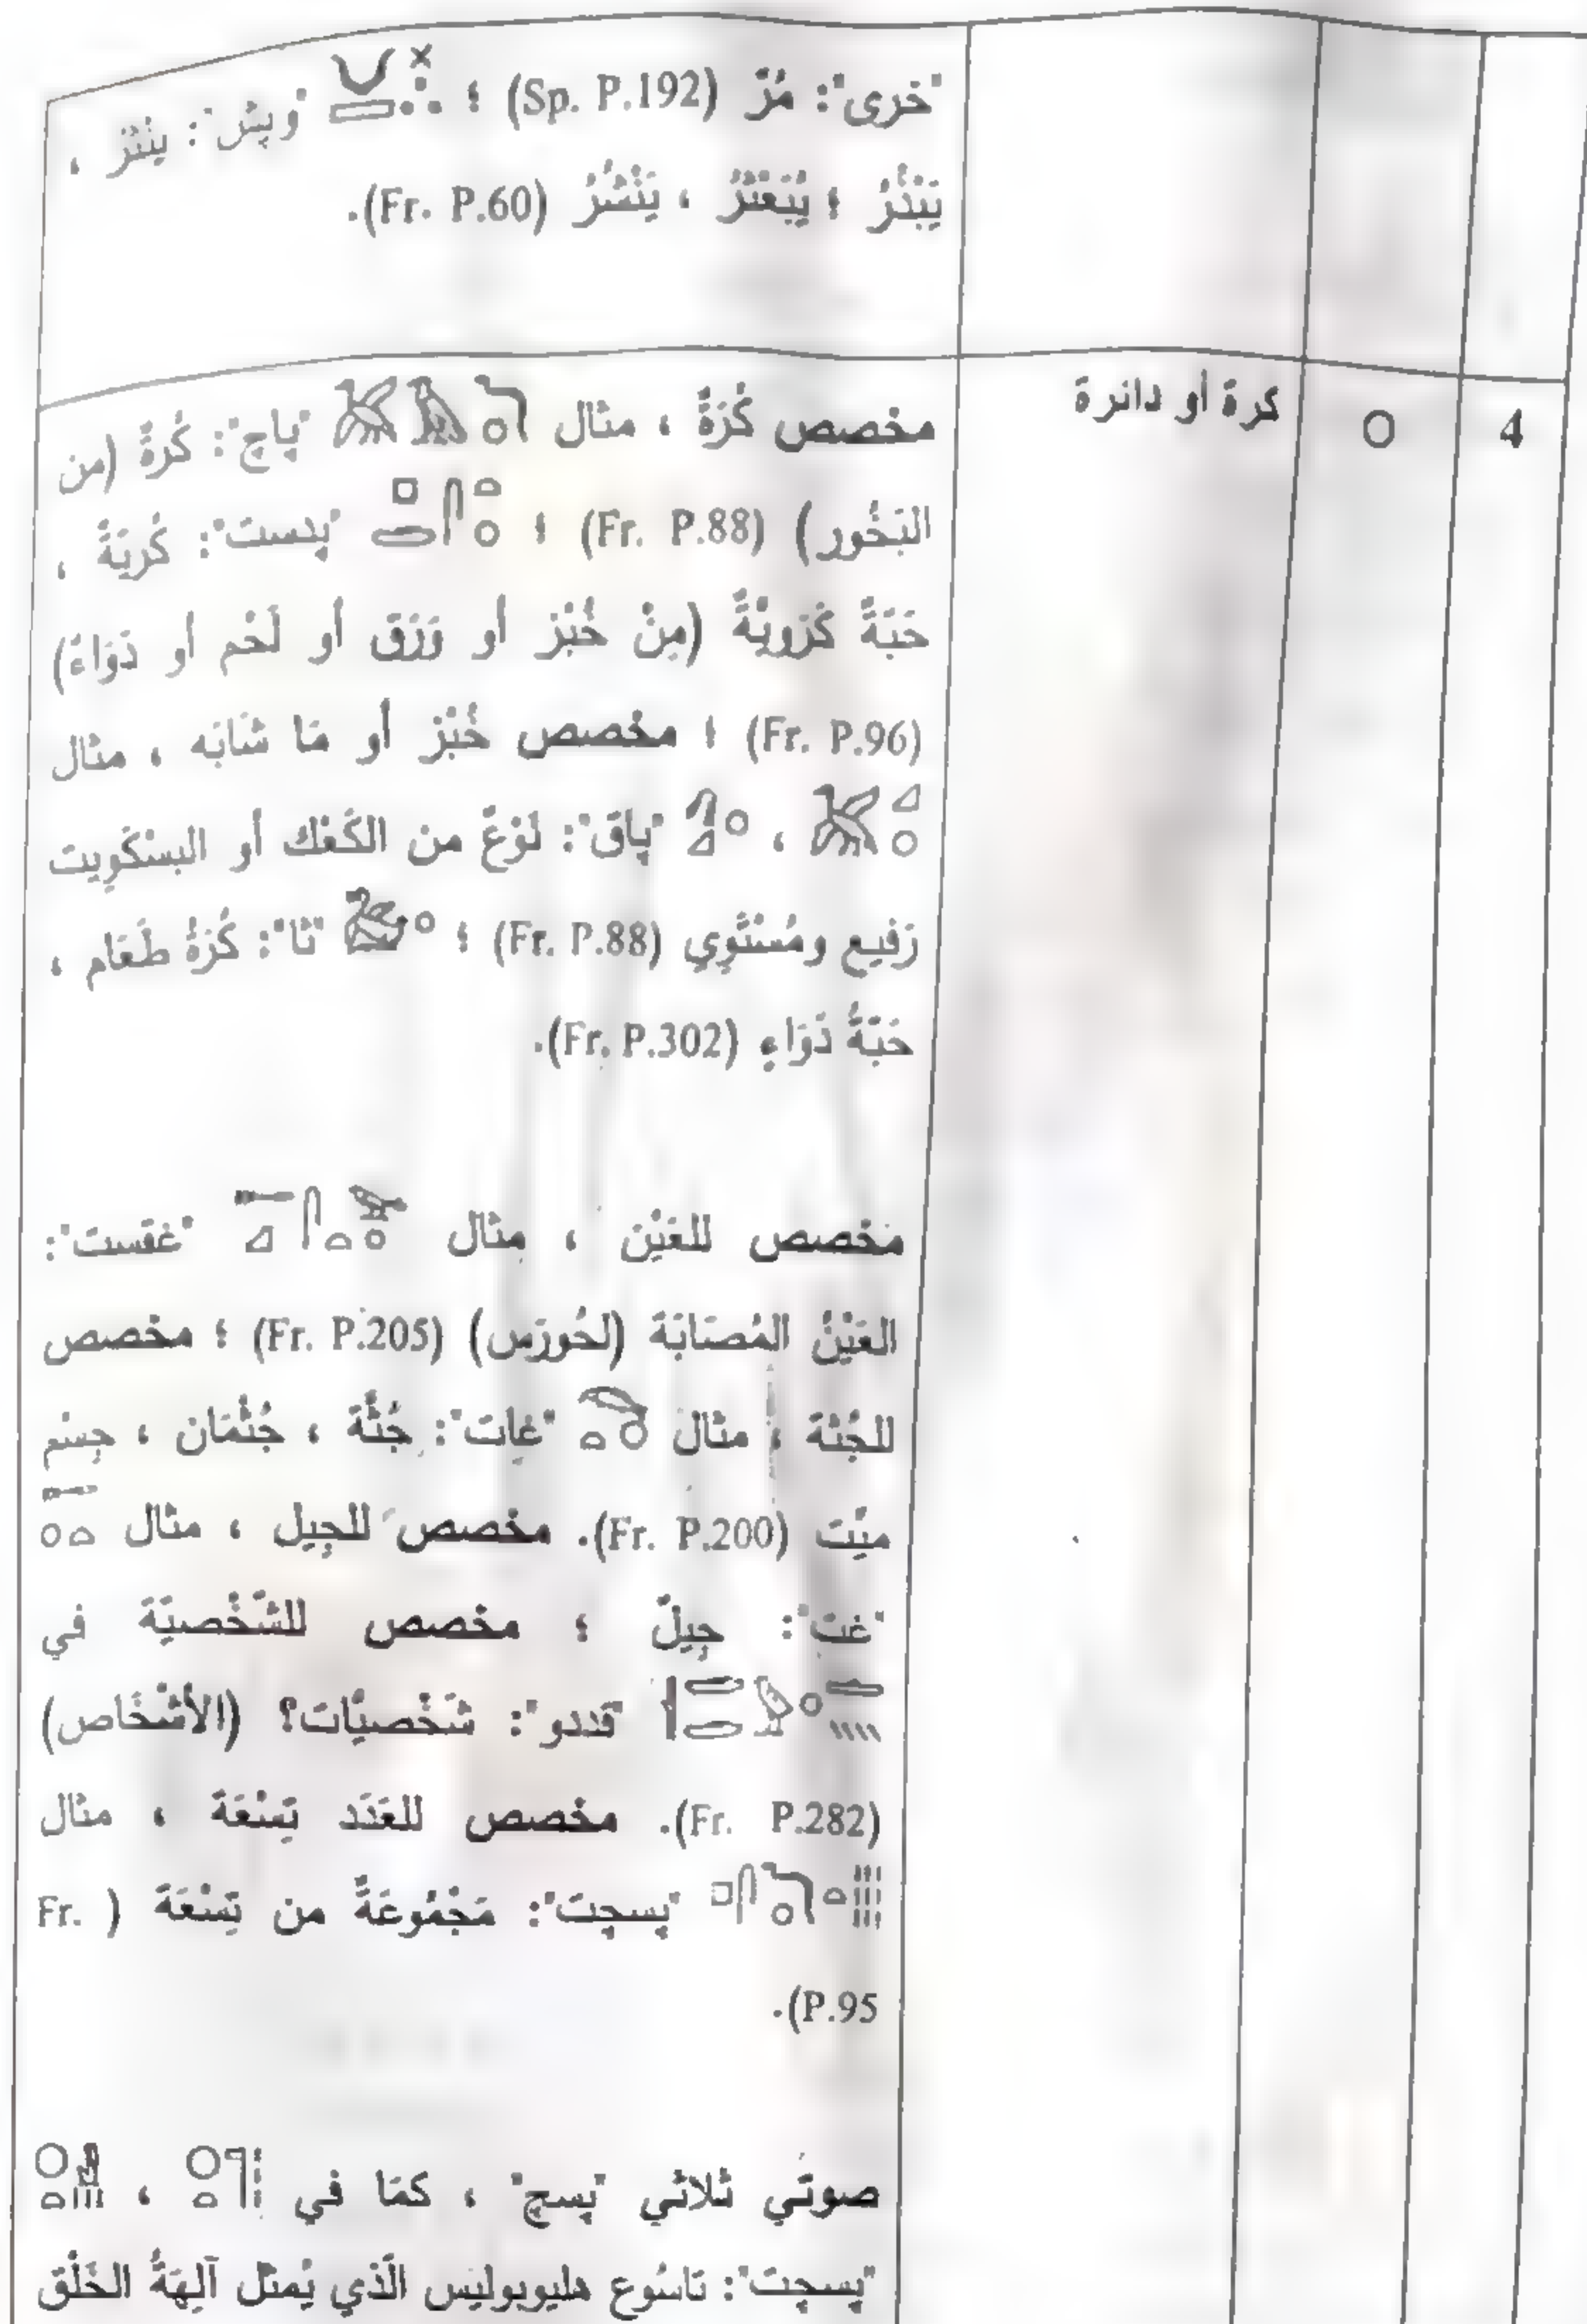 "خرى": مُرّ (Sp. P.192) ؛ "وپش": يَنْثر ،
يَبْذُرُ ؛ يُبَعْثرُ ، يَنْشُرُ (Fr. P.60).
4
○
كرة أو دائرة
مخصص كُرَةٌ ، مثال "پاچ": كُرَةٌ (من
البَخُور) (Fr. P.88) ؛ "پدست": كُريَةٌ ،
حَبّةٌ كُرَويْةٌ (مِنْ خُبْز أو وَرَق أو لَحْم أو دَوَاءٌ)
(Fr. P.96) ؛ مخصص خُبْز أو مَا شَابَه ، مثال
، "پاق": نَوْعٌ من الكَعْك أو البسْكَويت
رَفيع ومُسْتَوِي (Fr. P.88) ؛ "تا": كُرَةُ طَعَام ،
حَبّةُ دَوَاءٍ (Fr. P.302).
مخصص للعَيْن ، مثال "غقست":
العَيْنُ المُصَابَة (لحُورَس) (Fr. P.205) ؛ مخصص
للجُثة ، مثال "غات": جُثَّة ، جُثْمَان ، جِسْم
ميّت (Fr. P.200). مخصص للجِيل ، مثال
"غت": جِيلٌ ؛ مخصص للشّخْصيّة في
"قددو": شَخْصيَّات؟ (الأشْخَاص)
(Fr. P.282). مخصص للعَدَد تِسْعَة ، مثال
"پسچت": مَجْمُوعَةٌ من تِسْعَة ( Fr.
P.95).
صوتي ثلاثي "پسچ" ، كمَا في ،
"پسچت": تاسُوع هليوبوليس الَّذي يُمثل آلِهَةُ الخَلْق